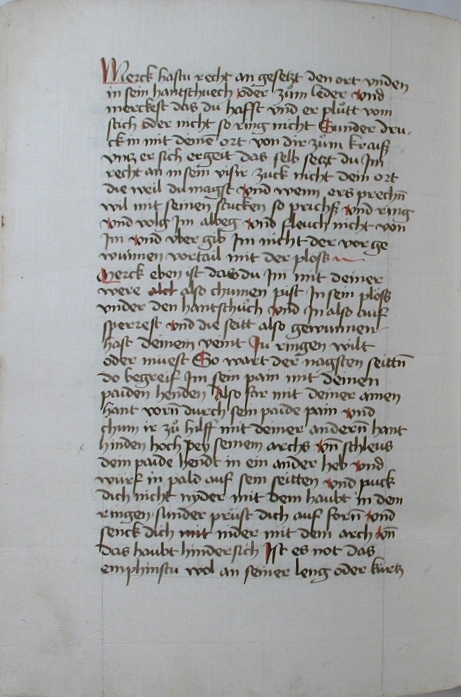 Merck hastu recht an gesetzt den ort vnden
in sein hantschuech oder zům leder vnd
merckest das du hafft vnd er plutt vom
stich oder nicht so ring nicht Sunder dru-
ck in mit deinē ort von dir zům kraiß
vntz er sich ergeit das selb setzt du Im
recht an in sein visir zuck nicht dein ort
die weil du magst vnd wenn ers prechn̄
wil mit seinen stucken so prichß vnd ring
vnd volg Im albeg vnd fleuch nicht von
Im vnd vber gib Im nicht der vor ge
wunnen vortail mit der plosß
Merck eben ist das du Im mit deiner
were also chumen pist In sein plosß
vnder den hantschůch vnd In also auf
sperrest vnd die seitt also gewunnen
hast deinem veint Zu ringen wilt
oder muest So wart der nagsten seittn̄
do begreif Im sein pain mit deinen
paiden henden Also far mit deiner
hant vorn̄ durch sein paide pain vnd
chum ir zů hilff mit deiner andern̄ hant
hinden hoch pey seinem archs vn̄ schleus
dem paide hendt in ein ander heb vnd
wurf in pald auf sein seitten vnd puck
dich nicht nider mit dem haubt in dem
ringen sunder prüst dich auf forn̄ vnd
senck dich mit nider mit dem arch vn̄
das haubt hindersich Ist es not das
emphinstu wol an seiner leng oder kürtz